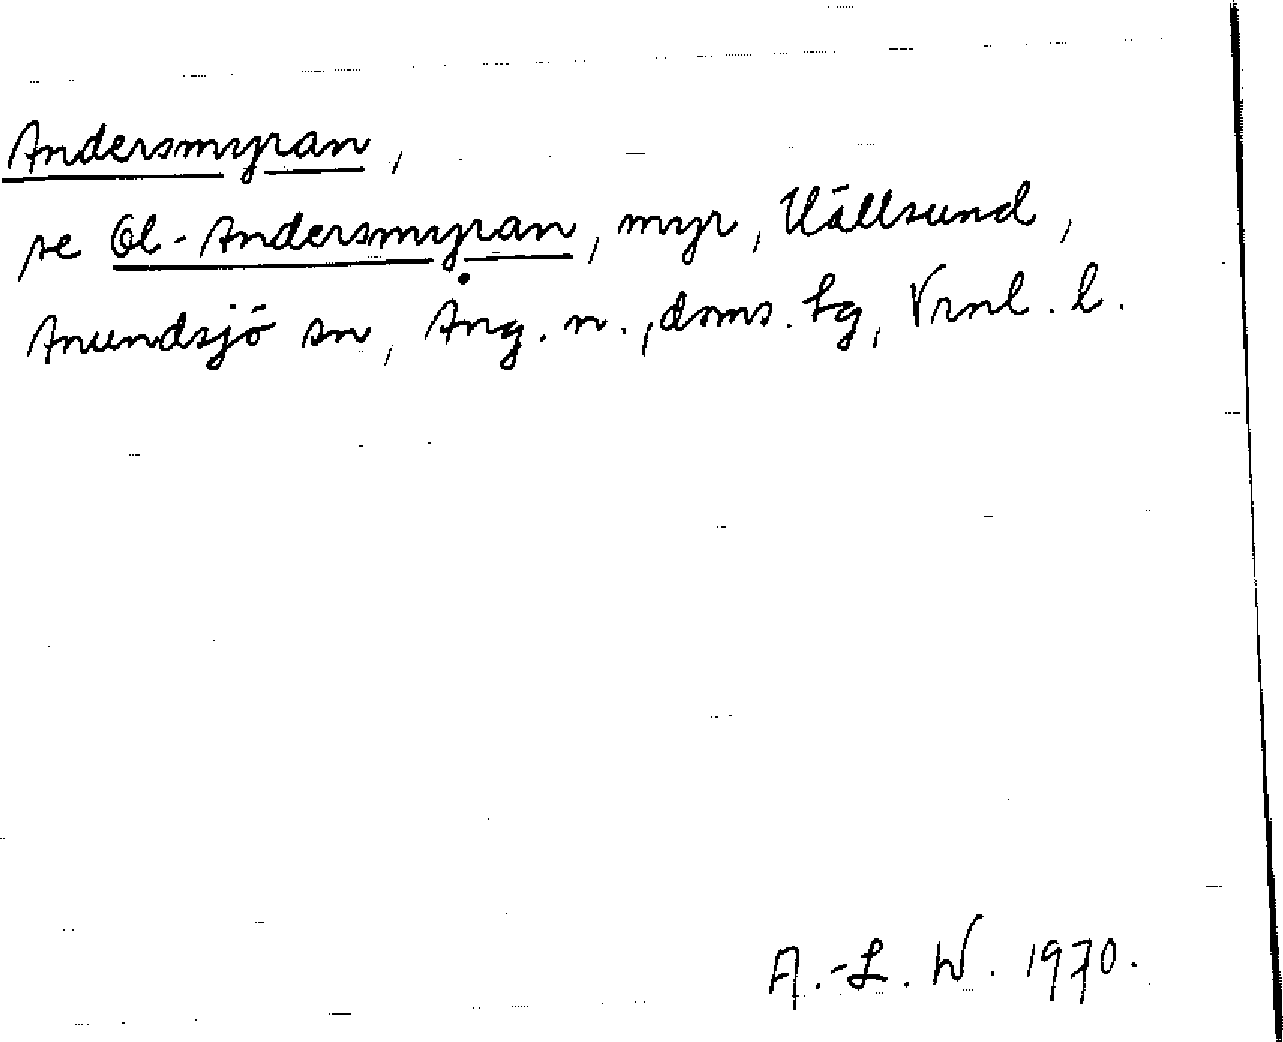 Andersmyran,
se Ol-Andersmyran, myr, Källsund,
Anundsjö sn, Ång. n., doms. tg, Vrnl. l.
A.-L. W. 1970.